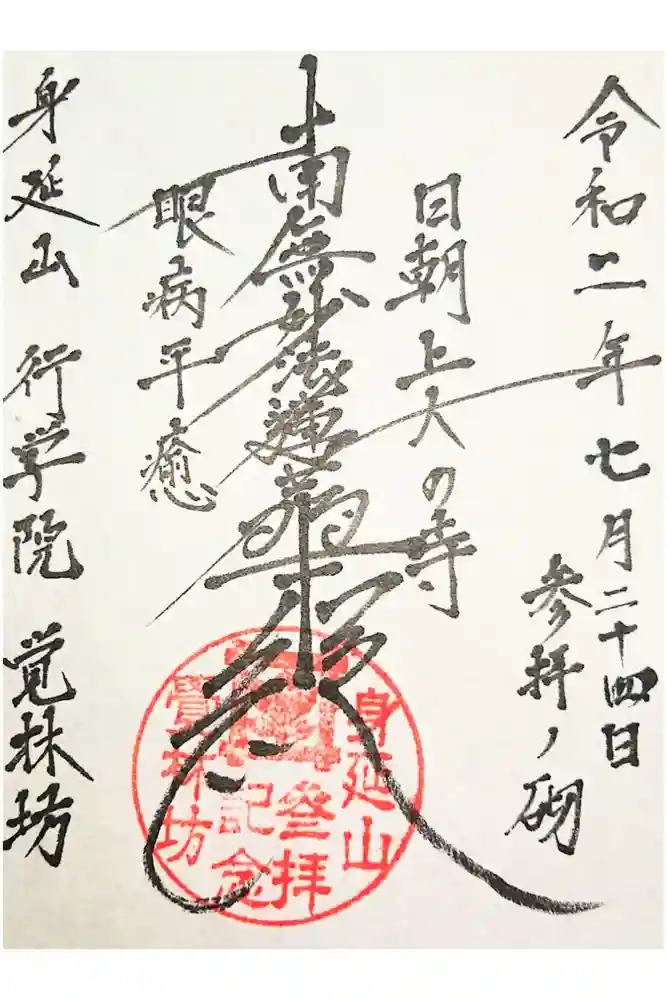 令和二年七月二十四日
参拝ノ砌
日朝上人の寺
南無妙法蓮華経
眼病平癒
身延山 行学院 覚林坊
身延山
参拝
記念
覺林坊